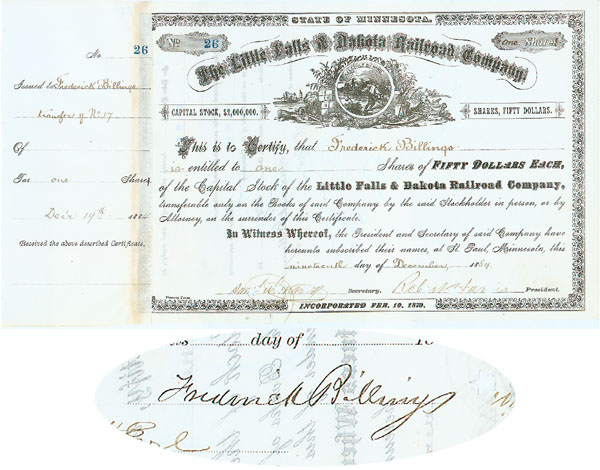 STATE OF MINNESOTA.
No. 26
No 26
One Share
The Little Falls & Dakota Railroad Company.
Issued to Frederick Billings
transfer of No 17
Of
For one Shares
Decr 19th 1884
Received the above described Certificate,
CAPITAL STOCK, $2,000,000.
SHARES, FIFTY DOLLARS.
This is to Certify, that Frederick Billings
is entitled to one Shares of FIFTY DOLLARS EACH,
of the Capital Stock of the Little Falls & Dakota Railroad Company,
transferable only on the Books of said Company by the said Stockholder in person, or by
Attorney, on the surrender of this Certificate.
In Witness Whereof, the President and Secretary of said Company have
hereunto subscribed their names, at St. Paul, Minnesota, this
nineteenth day of December, 1884
Secretary, President.
INCORPORATED FEB. 10, 1879.
day of 18
Frederick Billings